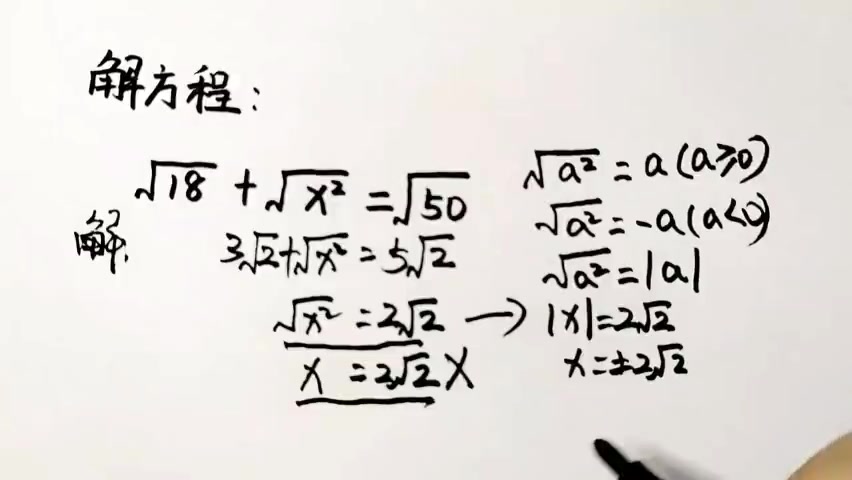 解方程:
√18 + √x² = √50
解:
3√2+√x² = 5√2
√x² = 2√2 →
x = 2√2 X
√a² = a (a≥0)
√a² = -a (a<0)
√a² = |a|
|x| = 2√2
x = ±2√2